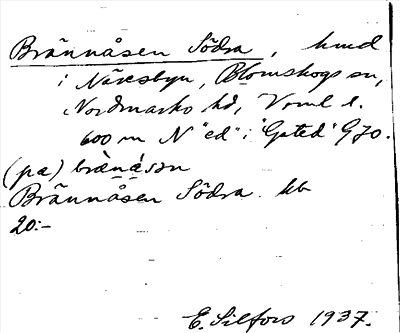 Brännåsen Södra, hmd
i Näresbyn, Blomskogs sn,
Nordmarks hd, Vrml l.
600 m N "ed" i "Gated" G70.
(pa) brànásən
Brännåsen Södra. kb
20:-
E. Silfors 1937.